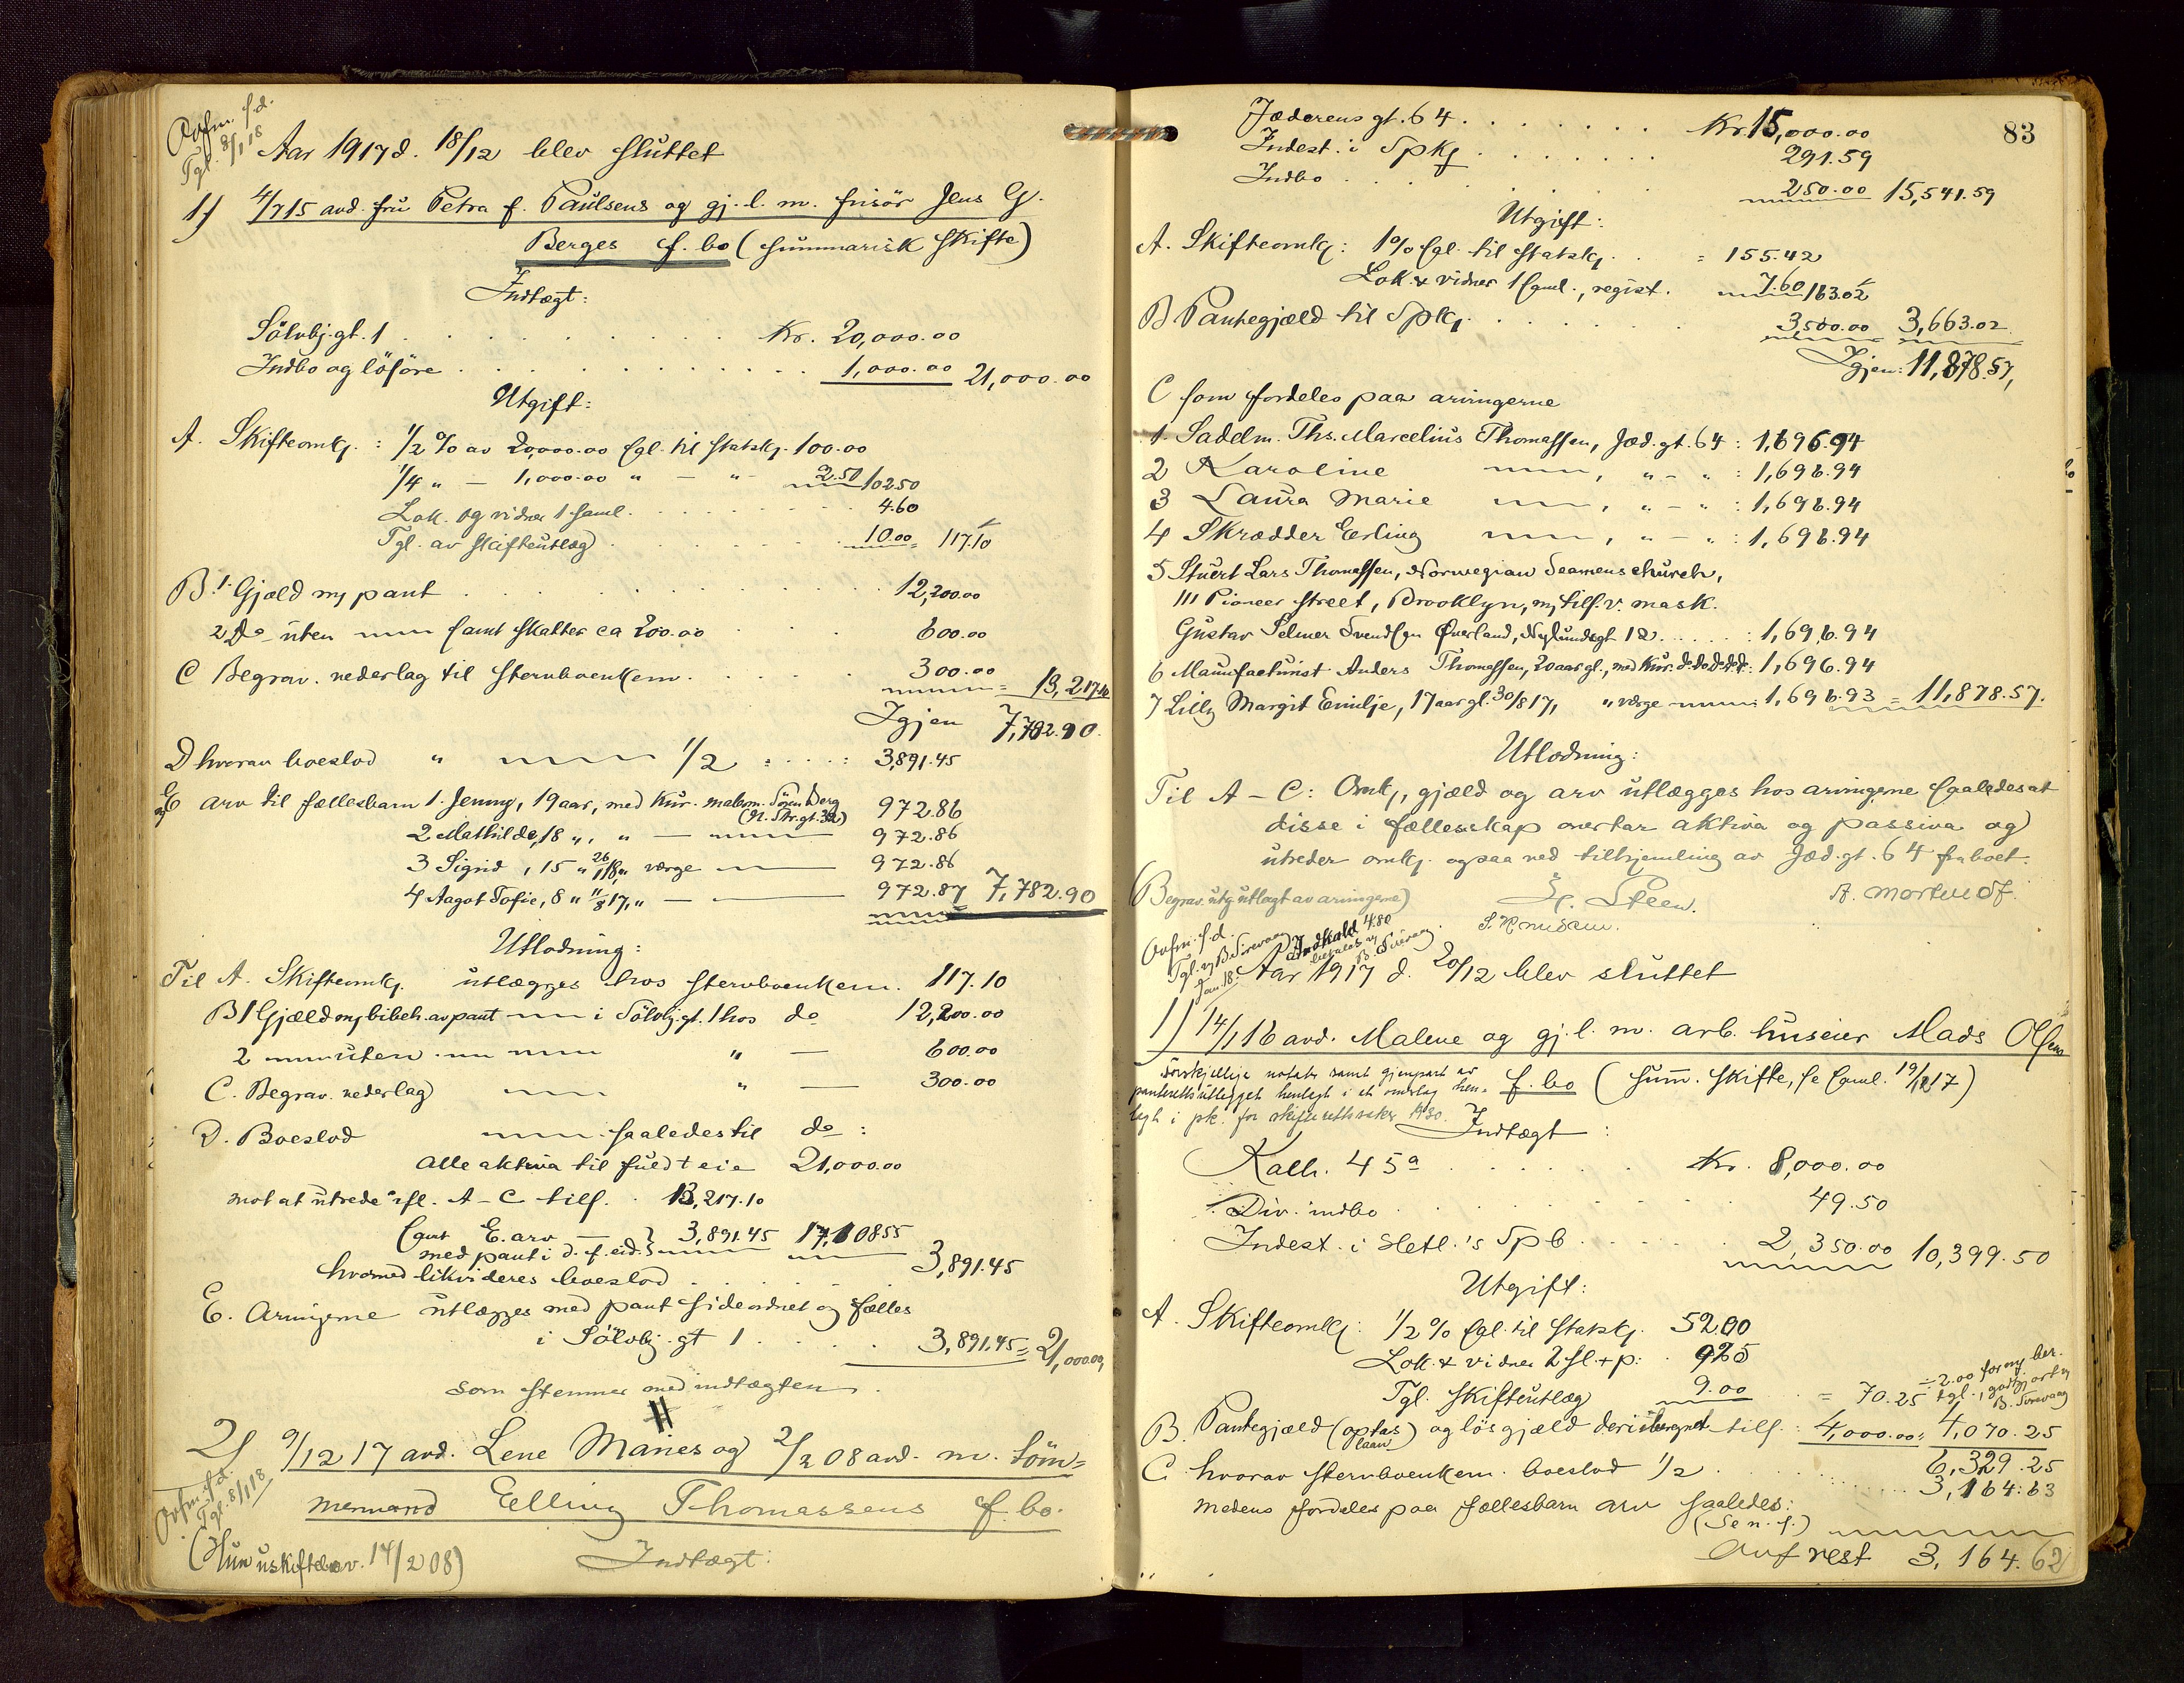 Avfm. f.d.
Tgl. 8/1 18
Aar 1917 d. 18/12 blev sluttet
1) 4/7 15 avd. fru Petra f. Paulsens og gj. l. m. frisör Jens G.
Berges f. bo (summarisk skifte)
Indtægt:
Sölvbj.gt. 1 . . . . . . . . . Kr. 20,000.00
Indbo og lösöre . . . . . . . . . 1,000.00 21,000.00
Utgift:
A. Skifteomk.: 1/2 % av 20,000.00 sgl. til statsk. 100.00
1/4 " — 1,000.00 " — " 2.50 102.50
Lok. og vidner 1 saml. . . . . . 4.60
Tgl. av skifteutlæg . . . . . 10.00 = 117.10
B 1. Gjæld m/ pant . . . . . . . 12,200.00
2 Do uten — samt skatter ca 200.00 . . 600.00
C Begrav. nederlag til stervboenkem. . . . 300.00 = 13,217.10
Igjen 7,782.90
D hvorav boeslod " — 1/2 : . . . : 3,891.45
E arv til fællesbarn 1. Jenny, 19 aar, med kur. malerm. Sören Berg
(N. Str.gt. 32) 972.86
2 Mathilde, 18 ", " — 972.86
3 Sigrid, 15 " 26/1 18, " værge — 972.86
4 Aagot Sofie, 8 " 11/8 17, " — 972.87 7,782.90
Utlodning:
Til A. Skifteomk. utlægges hos stervboenkem. 117.10
B 1 Gjæld m/ bibeh. av pant — i Sölvbj.gt. 1 hos do 12,200.00
2 — uten — — " — 600.00
C. Begrav. nederlag — " — 300.00
D. Boeslod — saaledes til do:
Alle aktiva til fuldt eie 21,000.00
mot at utrede ifl. A - C tils. . 13,217.10
samt E. arv — 3,891.45 17,108.55
med pant i d. f. eid.
hvormed likvideres boeslod . . . . . 3,891.45
E. Arvingerne utlægges med pant sideordnet og fælles
i Sölvbj.gt 1 . . . . 3,891.45 = 21,000.00
som stemmer med indtægten.
2) 9/12 17 avd. Lene Maries og 2/2 08 avd. m. töm-
mermand Elling Thomassens f. bo.
Avfm. f.d.
Tgl. 8/1 18
(Hun uskiftebev. 14/2 08)
Indtægt:
83
Jæderens gt. 64 . . . . . . . Kr. 15,000.00
Indest. i Spk. . . . . . . . 291.59
Indbo . . . . . . 250.00 15,541.59
Utgift:
A. Skifteomk: 1% sgl. til statsk. . = 155.42
Lok. & vidner 1 saml., regist. 7.60 163.02
B Pantegjæld til Spk. . . . . . 3,500.00 3,663.02
Igjen: 11,878.57,
C som fordeles paa arvingerne
1. Sadelm. Ths. Marcelius Thomassen, Jæd.gt. 64 : 1,696.94
2 Karoline — , " - " : 1,696.94
3 Laura Marie — , " - " : 1,696.94
4 Skrædder Erling — , " - " : 1,696.94
5 Stuert Lars Thomassen, Norwegian Seamens church,
111 Pioneer street, Brooklyn, m/ tils. v. mask.
Gustav Selmer Svendsen Överland, Nylundsgt 12 . . . . : 1,696.94
6 Manufacturist Anders Thomassen, 20 aar gl., med kur. do do do: 1,696.94
7 Lilly Margit Emilje, 17 aar gl. 30/8 17, " værge — : 1,696.93 = 11,878.57.
Utlodning:
Til A - C: Omk., gjæld og arv utlægges hos arvingerne saaledes at
disse i fællesskap overtar aktiva og passiva og
utreder omk. ogsaa ved tilhjemling av Jæd.gt. 64 fra boet.
(Begrav. utg. utlagt av arvingerne) Steen. A. Mortensen
S. Knudsen.
Avfm. f.d.
Indkald 4.80
Aar 1917 d. 20/12 blev sluttet
1) 14/1 16 avd. Malene og gj. l. m. arb. huseier Mads Olsens
f. bo (sum. skifte, se saml. 19/12 17)
Forskjellige notater samt gjenpart av
panterettsutlegget henlagt i et omslag hen-
lagt i pk. for skifterettssaker 1930.
Indtægt:
Kalh. 45a . . . . . . Kr. 8,000.00
Div. indbo . . . . . . 49.50
Indest. i Hetl.'s Spb . . . . . 2,350.00 10,399.50
Utgift:
A. Skifteomk: 1/2 % sgl. til statsk. 52.00
Lok. & vidner 2 sl. + p: . 9.25
Tgl. skifteutlæg 9.00 . . = 70.25
= 2.00 for ny ber.
tgl., godtgjort
B. Pantegjæld (optas laan) og lösgjæld deri iberegnet tils. : 4,000.00 = 4,070.25
6,329.25
C. hvorav stervboenkem. boeslod 1/2 . . . . . 3,164.63
medens fordeles paa fællesbarn arv saaledes:
(Se n. s.)
Arvf rest 3,164.62